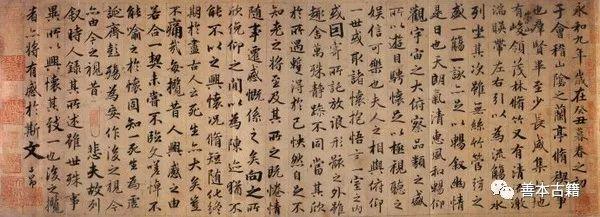 永和九年歲在癸丑暮春之初會
于會稽山陰之蘭亭脩禊事
也群賢畢至少長咸集此地
有峻領茂林脩竹又有清流激
湍暎帶左右引以為流觴曲水
列坐其次雖無絲竹管弦之
盛一觴一詠亦足以暢敘幽情
是日也天朗氣清惠風和暢仰
觀宇宙之大俯察品類之盛
所以遊目騁懷足以極視聽之
娛信可樂也夫人之相與俯仰
一世或取諸懷抱悟言一室之內
或因寄所託放浪形骸之外雖
趣舍萬殊靜躁不同當其欣
於所遇暫得於己快然自足不
知老之將至及其所之既惓情
隨事遷感慨係之矣向之所
欣俛仰之間以為陳迹猶不
能不以之興懷況脩短隨化終
期於盡古人云死生亦大矣豈
不痛哉每攬昔人興感之由
若合一契未嘗不臨文嗟悼不
能喻之於懷固知一死生為虛
誕齊彭殤為妄作後之視今
亦由今之視昔悲夫故列
敘時人錄其所述雖世殊事
異所以興懷其致一也後之攬
者亦將有感於斯文子昂
善本古籍